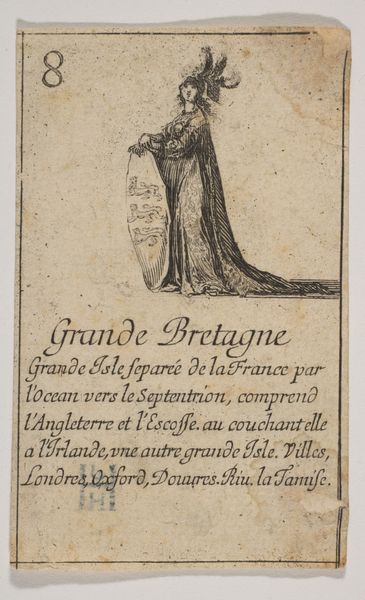 8
Grande Bretagne
Grande Isle separée de la France par
l'Ocean vers le Septentrion, comprend
l'Angleterre et l'Escosse. au couchant elle
a l'Irlande, vne autre grande Isle. Villes,
Londres, Oxford, Douures. Riu. la Tamise.